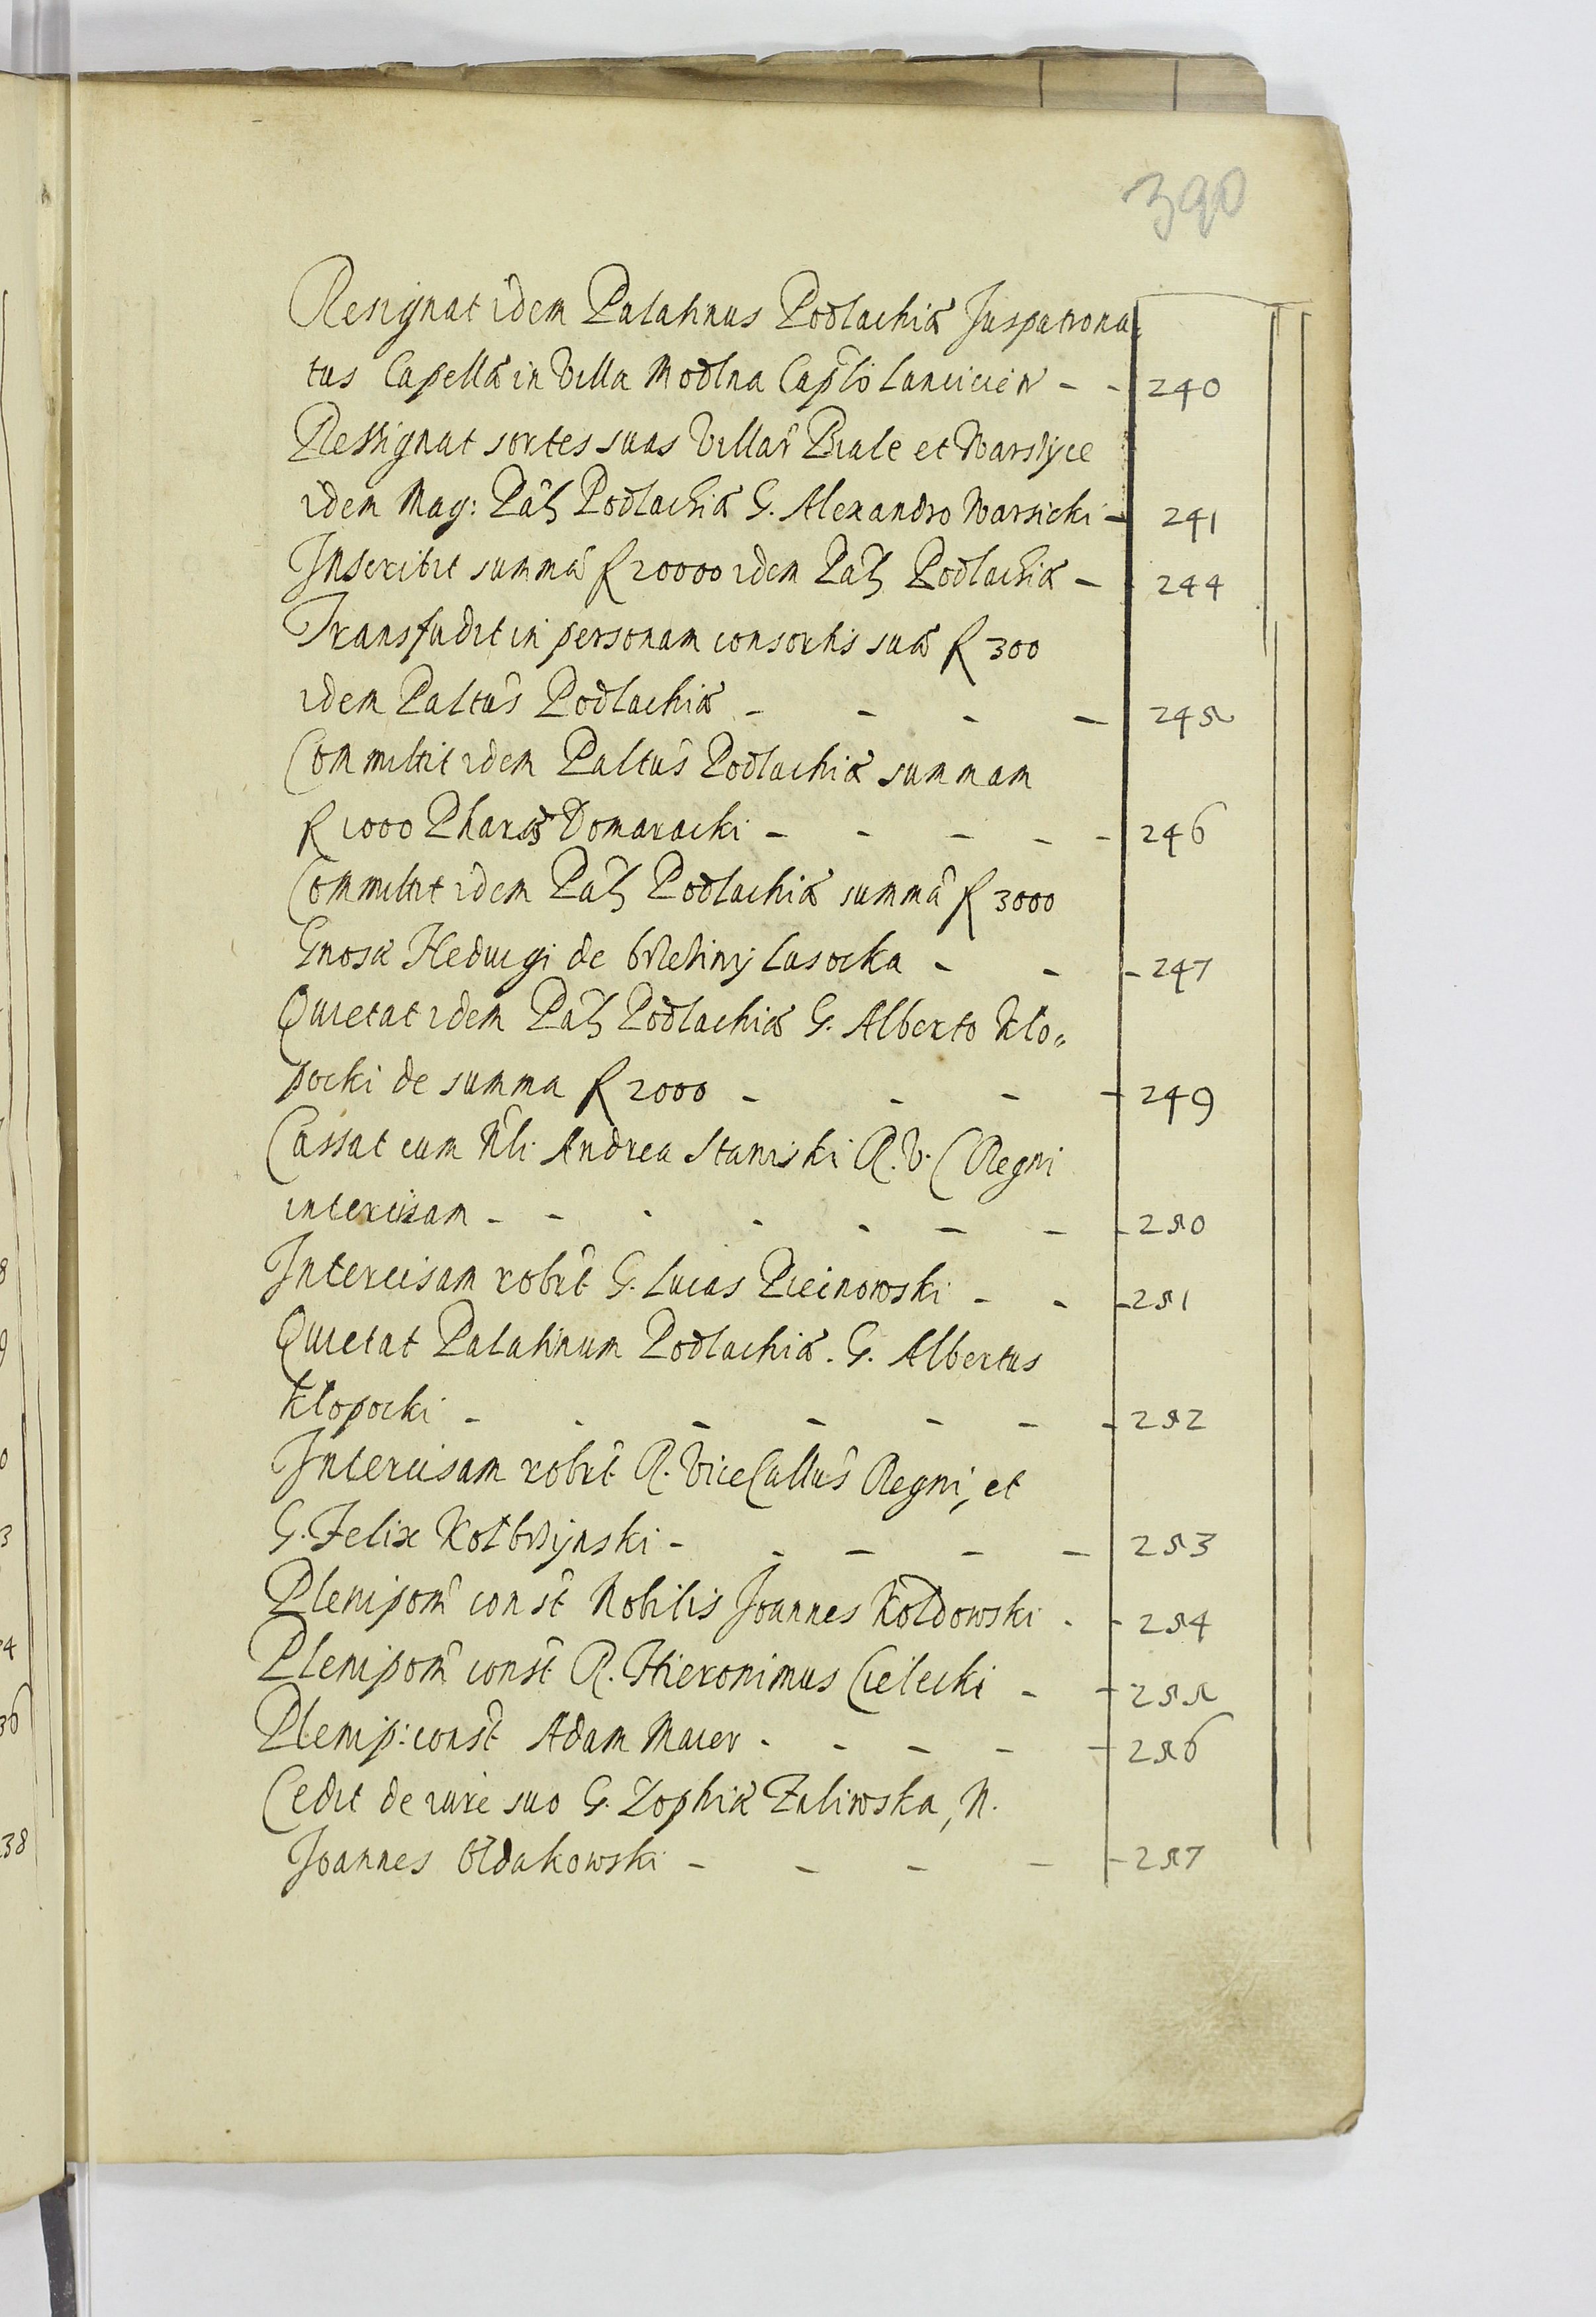 390
Resignat idem Palatinus Podlachiæ Juspatrona
tus Capellæ in Villa Modlna Caplo Lancicien - - 240
Resignat sortes suas Villar Biale et Warszyce
idem Mag: Pal Podlachiæ G. Alexandro Warsicki - 241
Inscribit summa f 20000 idem Pal Podlachiæ - 244
Transfudit in personam consortis suæ f 300
idem Paltus Podlachiæ - - - - 245
Committit idem Paltus Podlachiæ summam
f 1000 Domaracki - - - - - 246
Committit idem Pal Podlachiæ summa f 3000
Gnosæ Heduigi de Lasocka - - - 247
Quietat idem Pal Podlachiæ G. Alberto Klo„
pocki de summa f 2000 - - - - 249
Cassat cum Nli Andrea Staniski R. V. C Regni
intercisam - - - - - - - - 250
Intercisam robrt G. Lucas Piecnowski - - - 251
Quietat Palatinum Podlachiæ. G. Albertus
Klopocki - - - - - - - 252
Intercisam robrt R. ViceCallus Regni, et
G. Felix Kolbrzynski - - - - - 253
Plenipom const Nobilis Joannes Koldowski - - 254
Plenipom const R. Hieronimus Cielecki - - 255
Plenip: const Adam Maier - - - - - 256
Cedit de iure suo G. Zophiæ Zaliwska, N.
Joannes Oldakowski - - - - - 257